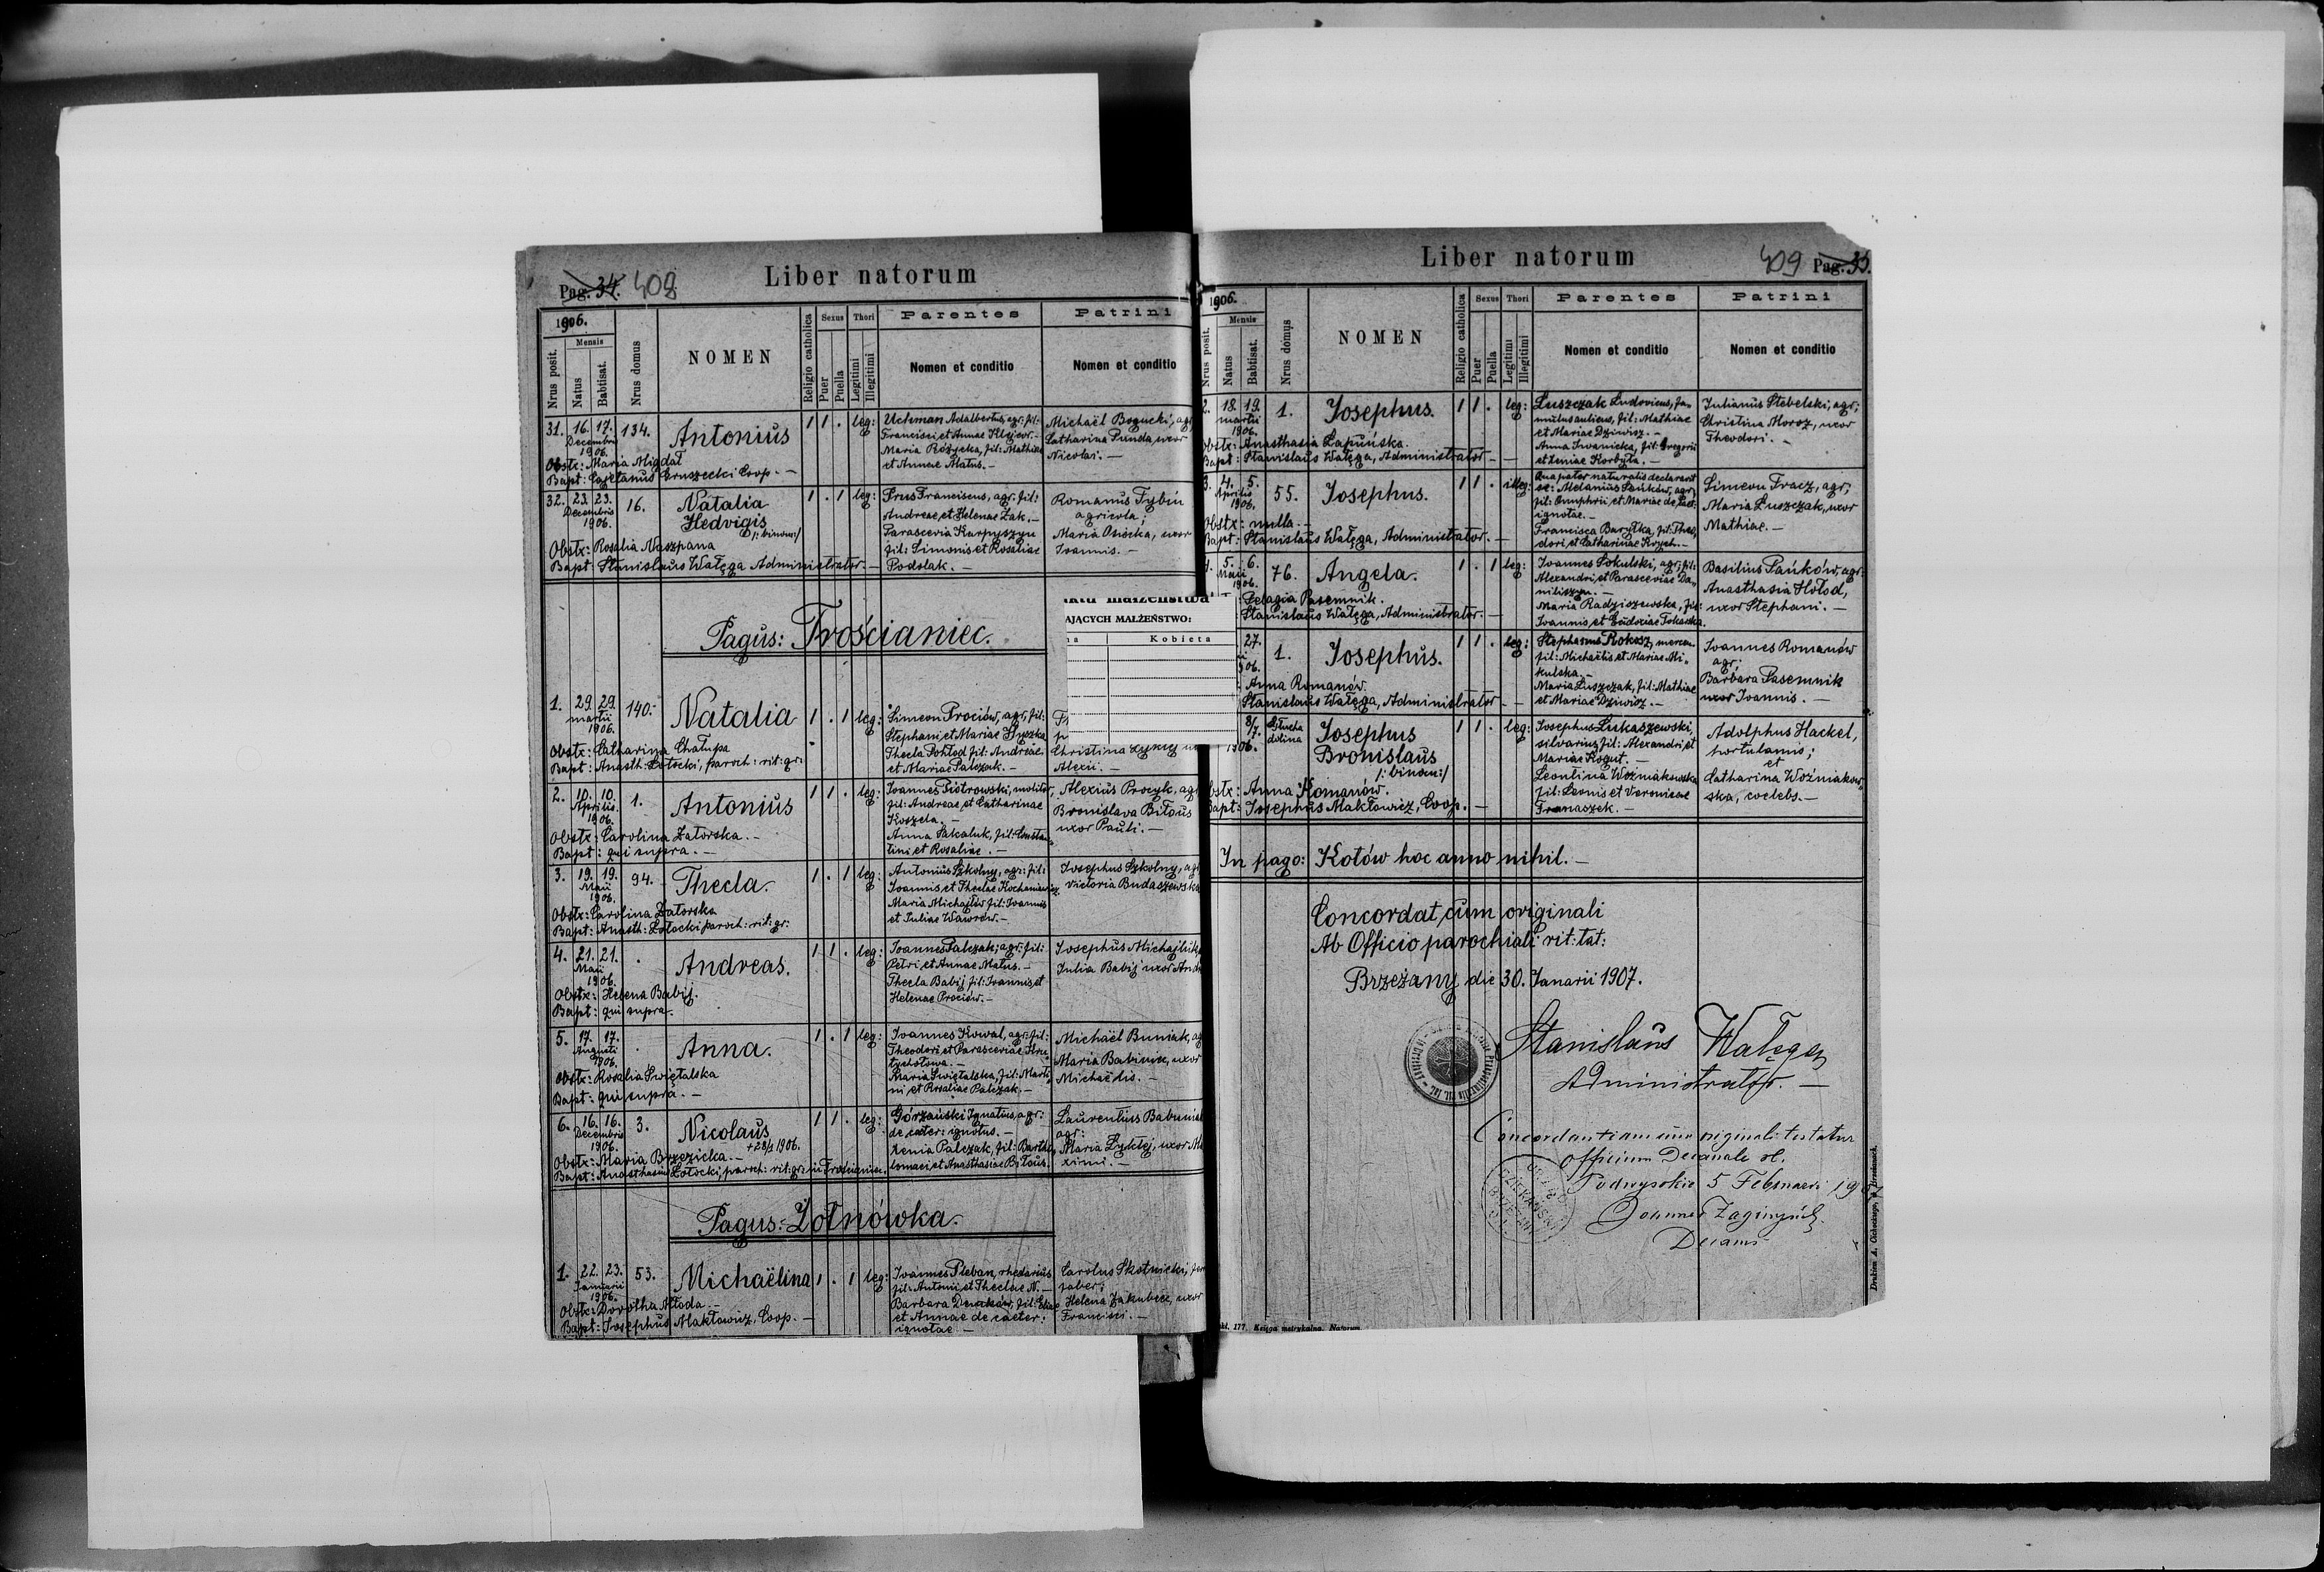 Pag. 34. 408
Liber natorum
1906.
Nrus posit.
Mensis
Natus
Babtisat.
Nrus domus
NOMEN
Religio catholica
Sexus
Puer
Puella
Thori
Legitimi
Illegitimi
Parentes
Nomen et conditio
Patrini
Nomen et conditio
31. 16. 17. Decembris 1906. 134. Antonius 1 1 . leg:
Uchman Adalbertus, agr: fil:
Francisci et Annae
Maria Różycka, fil: Mathiae
et Annae Matus. —
Michaël Bogucki, agr
Catharina Punda, uxor
Nicolai. —
Obstx: Maria Migdał
Bapt: Cajetanus Gruszecki Coop. —
32. 23. 23. Decembris 1906. 16. Natalia
Hedvigis
/: binom:/
1 . 1 leg:
Prus Franciscus, agr. fil:
Andreae, et Helenae Żak. —
Parascevia Karpyszyn
fil: Simonis et Rosaliae
Podslak. —
Romanus Fybiń
agricola;
Maria Osiecka, uxor
Ioannis. —
Obstx: Rosalia Naszpana
Bapt: Stanislaus Wałęga Administrator. —
Pagus: Trościaniec.
1. 29. 29. martii 1906. 140. Natalia 1 . 1 leg:
Simeon Prociów, agr, fil:
Stephani et Mariae Hyszka
Thecla Pohłod fil: Andreae
et Mariae Palczak. —
Christina
Alexii. —
Obstx: Catharina Chałupa
Bapt: Anasth: Łotocki, paroch: rit: gr:
2. 10. 10. Aprilis 1906. 1. Antonius 1 1 . leg:
Ioannes Piotrowski, molitor,
fil: Andreae, et Catharinae
Koszela. —
Anna Sakaluk, fil: Constan
tini et Rosaliae. —
Alexius Procyk, agr
Bronislava Biłous
uxor Pauli. —
Obstx: Carolina Zatorska. —
Bapt: qui supra. —
3. 19. 19. Maii 1906. 94. Thecla. 1 . 1 leg:
Antonius Szkolny, agr: fil:
Ioannis et Theclae
Maria Michajłów fil: Ioannis
et Iuliae Wawrów. —
Iosephus Szkolny, agr
Victoria Budaszewska
Obstx: Carolina Zatorska
Bapt: Anasth: Łotocki paroch: rit: gr:
4. 21. 21. Maii 1906. . Andreas. 1 1 . leg:
Ioannes Palczak, agr: fil:
Petri et Annae Matus. —
Thecla Babij fil: Ioannis et
Helenae Prociów. —
Iosephus Michajluk,
Iulia Babij uxor
Obstx: Helena Babij.
Bapt: qui supra. —
5. 17. 17. Augusti 1906. . Anna. 1 . 1 leg:
Ioannes Kowal, agr: fil:
Theodori, et Parasceviae
Maria Swiętalska, fil: Marti,
ni et Rosaliae Palczak. —
Michaël Buniak, ag
Maria Babiniec, uxor
Michaëlis. —
Obstx: Rosalia Swiętalska
Bapt: qui supra. —
6. 16. 16. Decembris 1906. 3. Nicolaus
1 1 . leg:
Górzański Ignatius, agr:
de caeter: ignotus. —
Xenia Palczak, fil: Bartho,
lomaei et Anasthasiae Biłous.
Laurentius
agr:
Maria Łyktej, uxor
ximi. —
Obstx: Maria Brzezicka. —
Bapt: Anasthasius Łotocki, paroch: rit: gr: in Trościaniec.
Pagus: Żołnówka.
1. 22. 23. Ianuarii 1906. 53. Michaëlina 1 . 1 leg:
Ioannes Pleban, rhedarius
fil: Antonii et Theclae N. —
Barbara fil: Eliae
et Annae de caeter:
ignotae —
Carolus Skotnicki,
faber;
Helena Jakubiec, uxor
Francisci. —
Obstx: Dorotha Młoda —
Bapt: Iosephus Makłowicz, Coop. —
MAŁŻEŃSTWO:
Kobieta
Liber natorum
409 Pag. 35.
1906.
Nrus posit.
Mensis
Natus
Babtisat.
Nrus domus
NOMEN
Religio catholica
Sexus
Puer
Puella
Thori
Legitimi
Illegitimi
Parentes
Nomen et conditio
Patrini
Nomen et conditio
2. 18. 19. martii 1906. 1. Iosephus. 1 1 . leg:
Łuszczak Ludovicus, fa,
mulus aulicus, fil: Mathiae
et Mariae Dziwisz. —
Anna Iwanicka, fil: Gregorii
et Xeniae Korbyła. —
Iulianus Stebelski, agr;
Christina Moroz, uxor
Theodori. —
Obstx: Anasthasia Łapuńska.
Bapt: Stanislaus Wałęga, Administrator —
3. 4. 5. Aprilis 1906. 55. Iosephus. 1 1 . illeg:
Qua pater naturalis declaravit
se: Melanius Pańków, agr,
fil: Onuphrii et Mariae de caet:
ignotae. —
Francisca Baryłka, fil: Theo,
dori et Catharinae Krych. —
Simeon Tracz, agr;
Maria Łuszczak, uxor
Mathiae. —
Obstx: nulla. —
Bapt: Stanislaus Wałęga, Administrator. —
5. 6. Maii 1906. 76. Angela. 1 . 1 leg:
Ioannes Sokulski, agr, fil:
Alexandri, et Parasceviae Da,
niliszyn. —
Maria Radziszewska, fil:
Ioannis, et Eudoxiae Tokarska.
Basilius Pańków, agr:
Anasthasia Hołod,
uxor Stephani. —
Pelagia Pasemnik.
Stanislaus Wałęga, Administrator —
27. 1. Iosephus. 1 1 . leg:
Stephanus Rokosz,
fil: Michaëlis et Mariae Mi,
kulska. —
Maria Łuszczak, fil: Mathiae
et Mariae Dziwisz. —
Ioannes Romanów
agr;
Barbara Pasemnik
uxor Ioannis. —
Anna Romanów
Stanislaus Wałęga, Administrator —
8/7. 1906. Głucha dolina Iosephus
Bronislaus
/: binom:/
1 1 . leg:
Iosephus Łukaszewski,
silvarius, fil: Alexandri, et
Mariae Kogut. —
Leontina Woźniakowska
fil: Leonis et Veronicae
Franaszek. —
Adolphus Hackel,
hortulanus;
et
Catharina Woźniakow,
ska, coelebs. —
Obstx: Anna Romanów.
Bapt: Iosephus Makłowicz, Coop. —
In pago: Kotów hoc anno nihil. —
Concordat cum originali
Ab Officio parochiali rit: lat:
Brzeżany die 30. Ianarii 1907.
Stanislaus Wałęga
Administrator. —
Concordantiam cum originali testatur
Officium Decanale rl.
Podwysokie 5 Februarii 1907
Decanus
Drukiem A. Cichockiego, w Brzeżanach.
177. Księga metrykalna. Natorum.